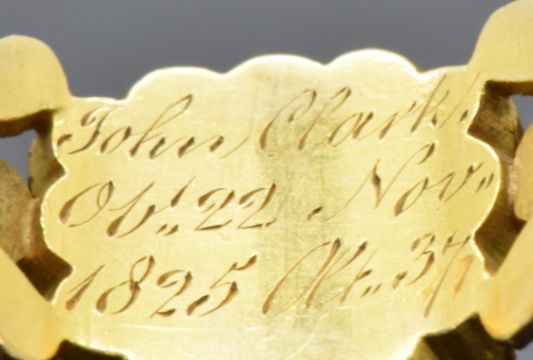 John Clark.
Obt. 22 Nov..
1825 Æt.. 37